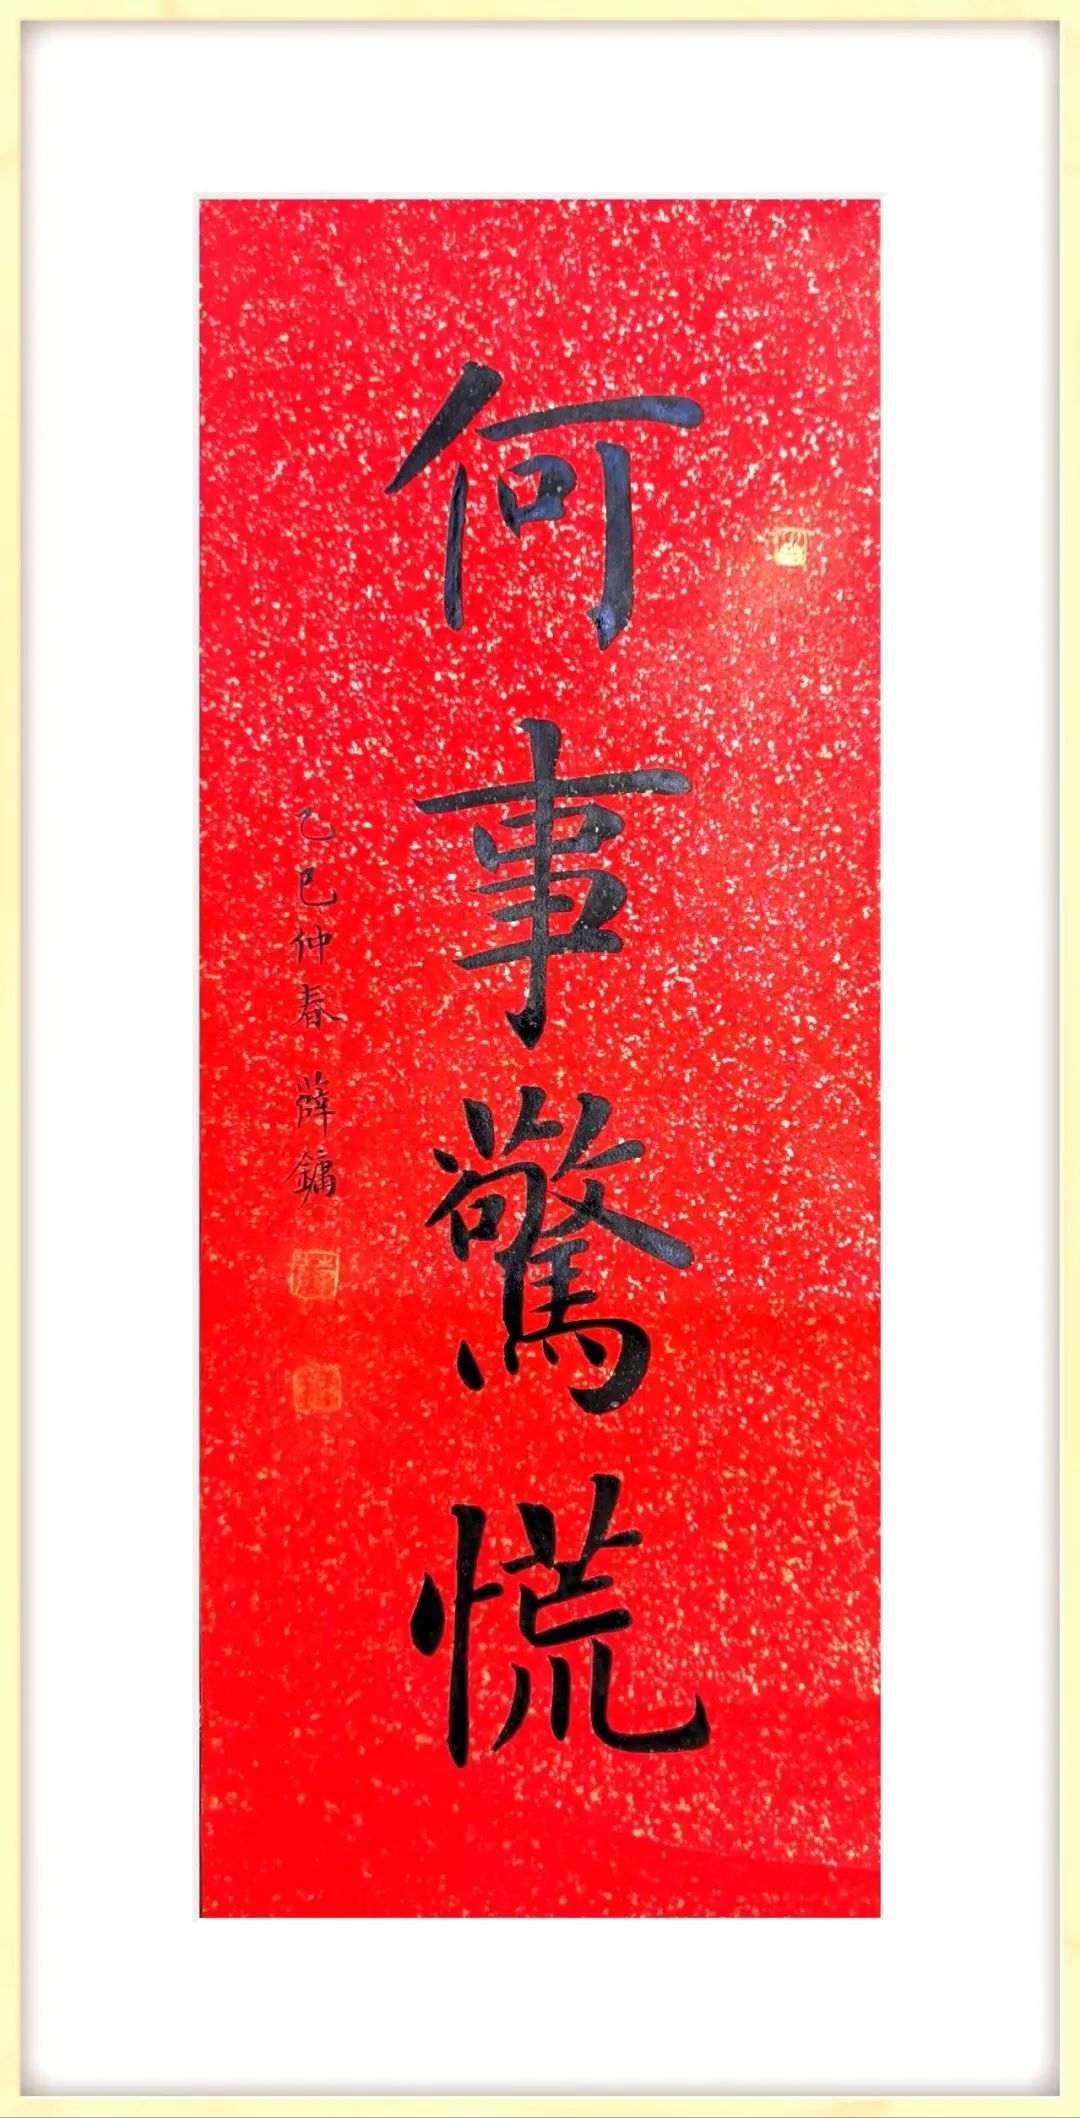 何事驚慌
乙巳仲春 薛鏞